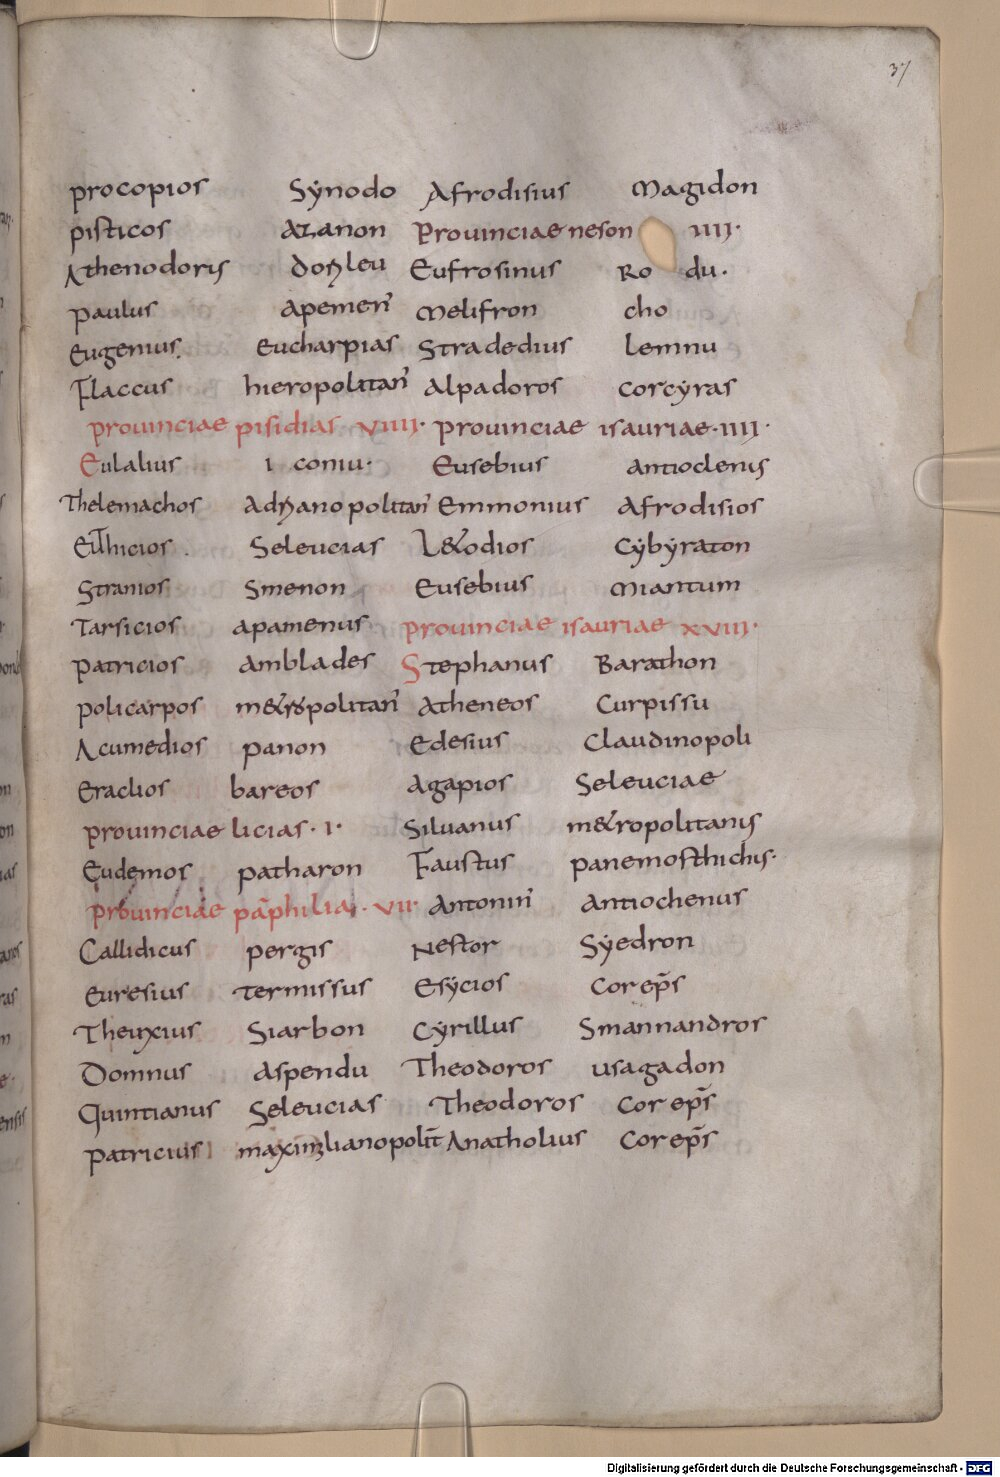 37
procopios Synodo
pisticos azanon
Athenodoris dorileu
paulus apemen̄
Eugenius. Eucharpias
Flaccus hieropolitan̄
prouinciae pisidias VIIII·
Eulalius I coniu·
Thelemachos Adrianopolitan̄
Euthicios. Seleucias
Stranios Smenon
Tarsicios apamenus
patricios amblades
policarpos metropolitan̄
Acumedios panon
Eraclios bareos
prouinciae licias· I·
Eudemos patharon
prouinciae pāphilias· VII·
Callidicus pergis
Euresius termissus
Theuxius Siarbon
Domnus aspendu
Quintianus Seleucias
patricius maximlianopolit̄
Afrodisius Magidon
Prouinciae neson IIII·
Eufrosinus Ro du·
Melifron cho
Stradedius lemnu
Alpadoros corcyras
prouinciae isauriae· IIII·
Eusebius antioclenis
Emmonius Afrodisios
Letodios Cybyraton
Eusebius Miantum
prouinciae isauriae XXVIII·
Stephanus Barathon
Atheneos Curpissu
Edesius Claudinopoli
Agapios Seleuciae
Siluanus metropolitanis
Faustus panemosthichis·
Antonin̄ antiochenus
Nestor Syedron
Esycios Cor ep̄s
Cyrillus Smannandros
Theodoros usagadon
Theodoros Cor ep̄s
Anatholius Cor ep̄s
Digitalisierung gefördert durch die Deutsche Forschungsgemeinschaft - DFG